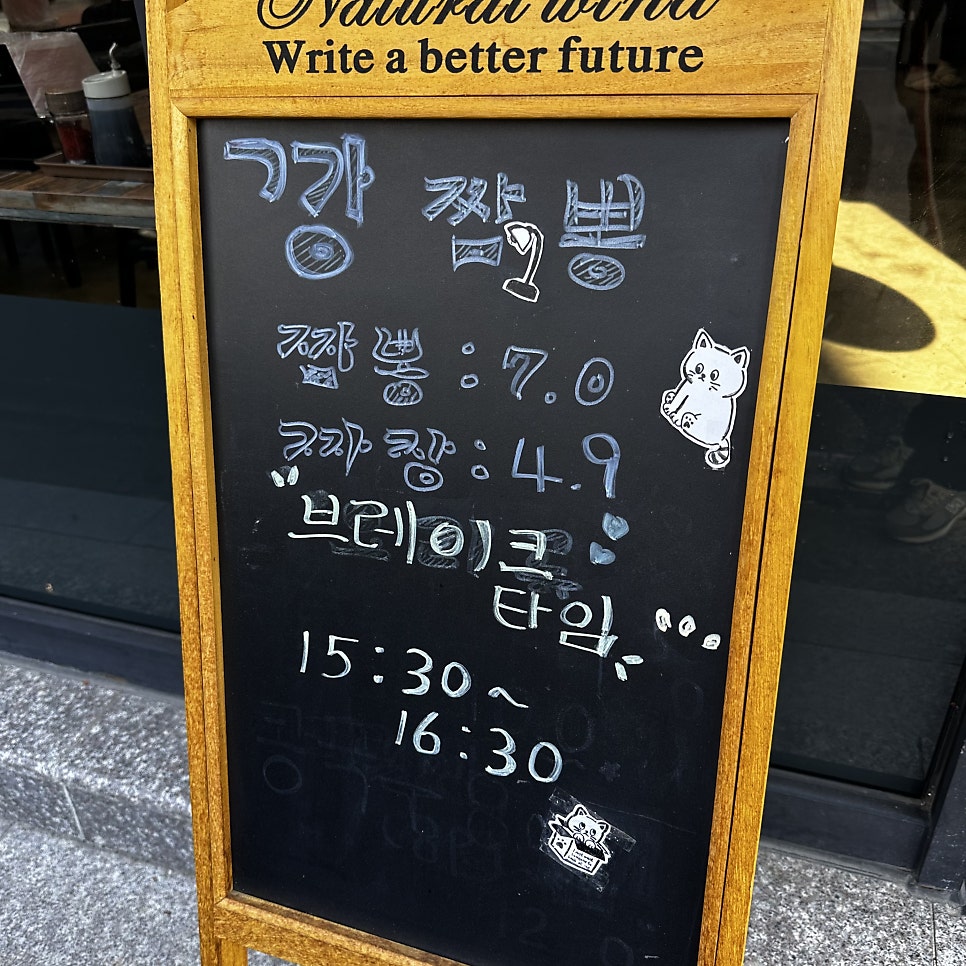 Natural wind
Write a better future
깡 짬뽕
짬뽕 : 7.0
짜장 : 4.9
"브레이크
타임"...
15:30~
16:30